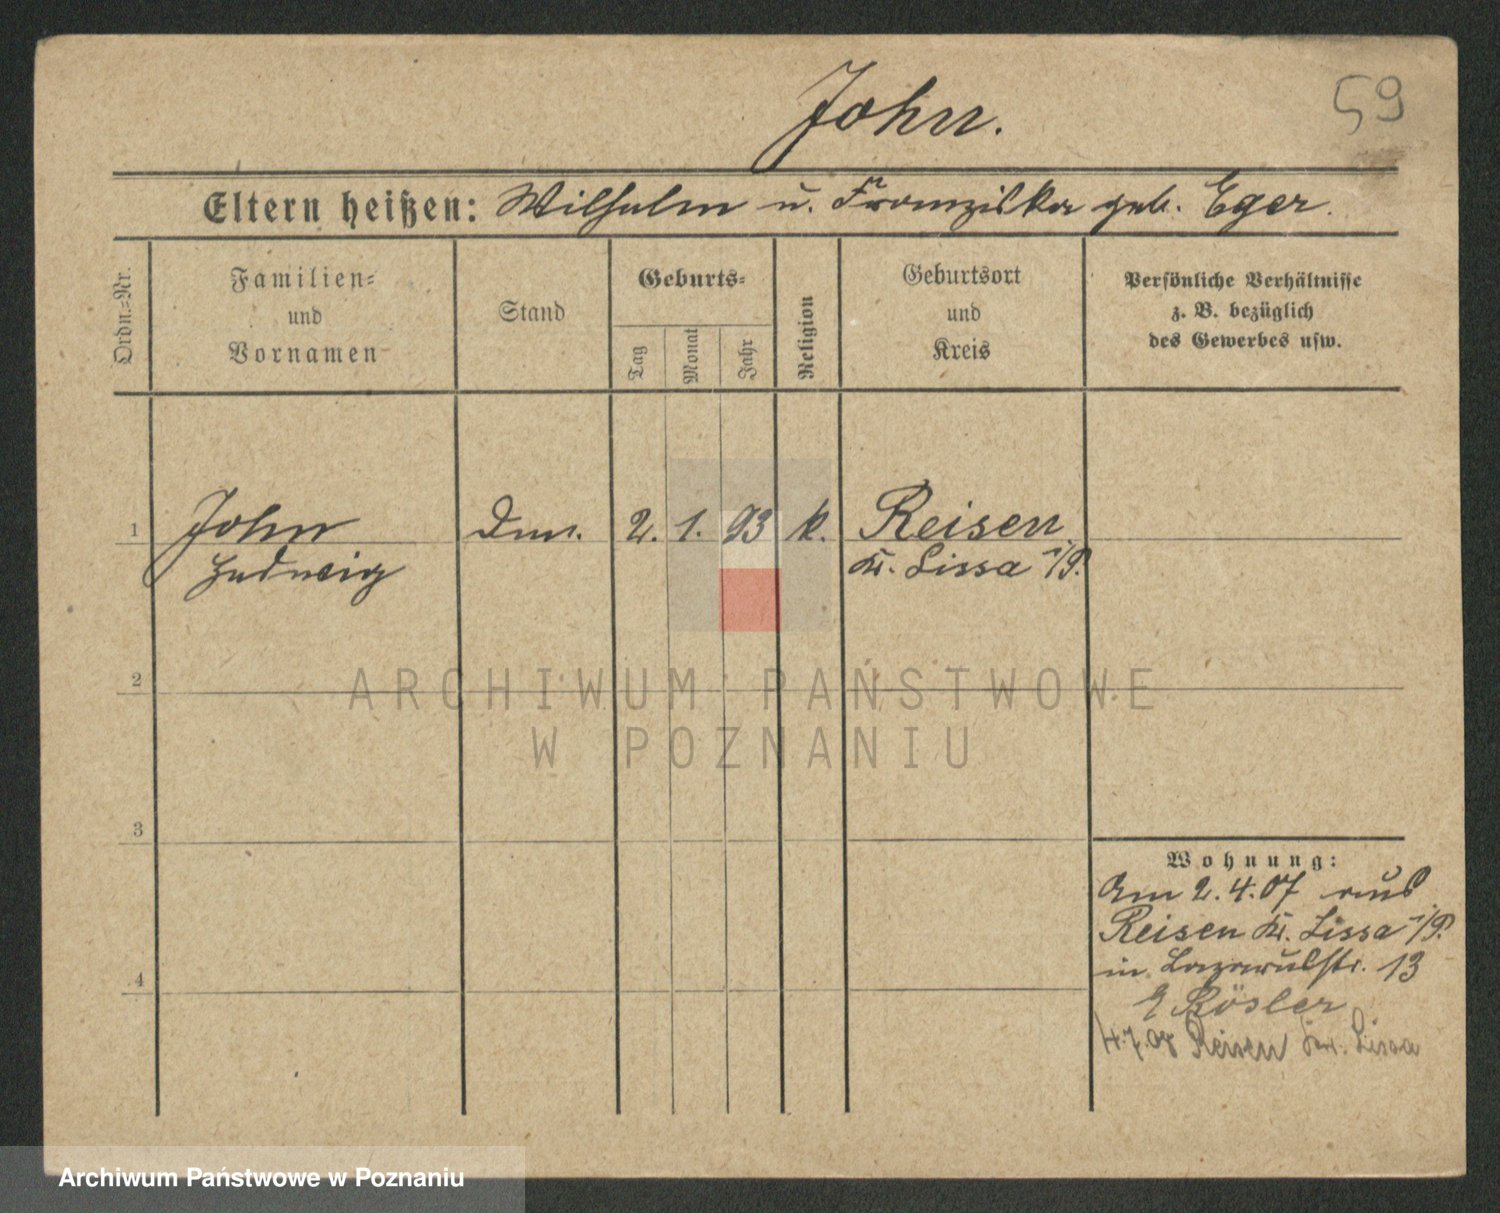 John.
59
Eltern heißen: Wilhelm u. Franziska geb. Eger.
Ordn.=Nr.
Familien=
und
Vornamen
Stand
Geburts=
Tag
Monat
Jahr
Religion
Geburtsort
und
Kreis
Persönliche Verhältnisse
z. B. bezüglich
des Gewerbes usw.
1 John 2. 1. 93 k. Reisen
Hedwig Kr. Lissa i/P.
2
3
4
Wohnung:
Am 2.4.07 aus
Reisen Kr. Lissa i/P.
in Lazarusstr. 13
Rösler
4.7.07 Reisen Kr. Lissa
ARCHIWUM PAŃSTWOWE
W POZNANIU
Archiwum Państwowe w Poznaniu